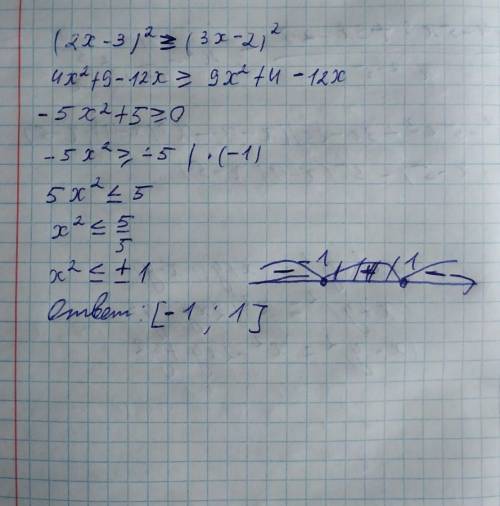 (2x-3)² ≥ (3x-2)²
4x²+9-12x ≥ 9x²+4-12x
-5x²+5≥0
-5x² ≥ -5 | ·(-1)
5x² ≤ 5
x² ≤ 5/5
x² ≤ ± 1
- -1 + 1 -
Ответ: [-1 ; 1]